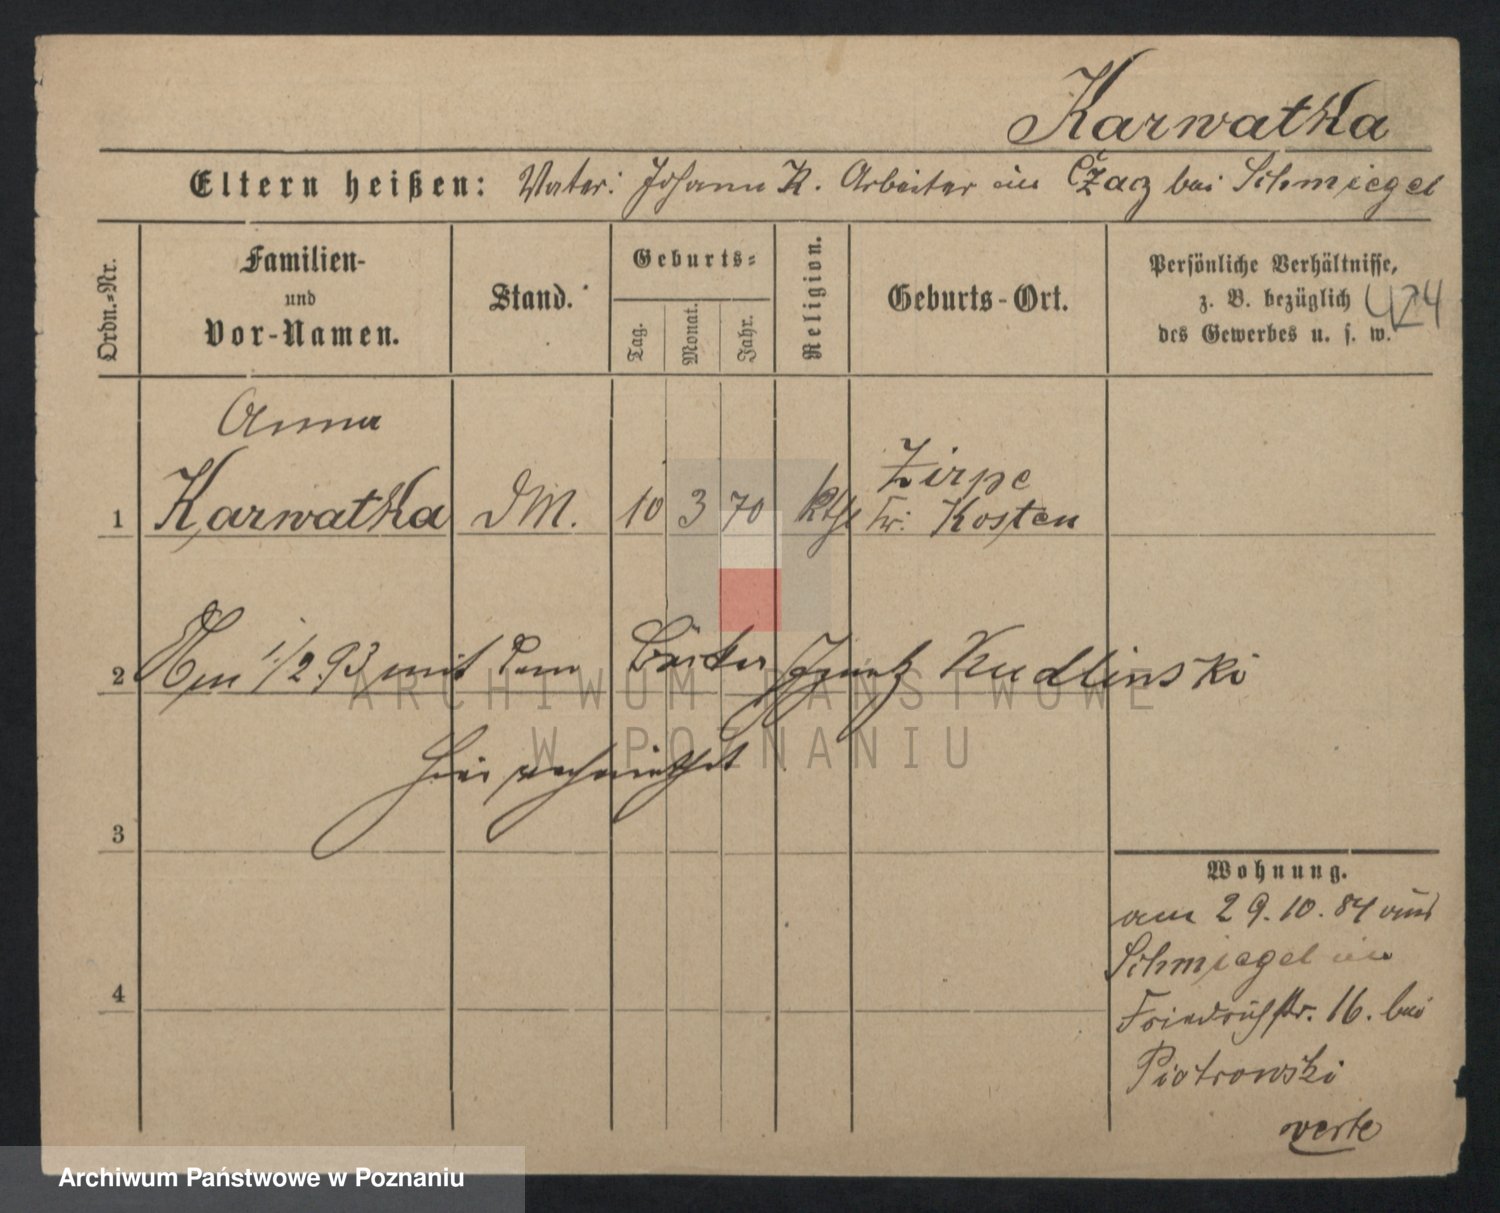 Karwatka
Eltern heißen: Vater: Johann K. Arbeiter in Czacz bei Schmiegel
Ordn.-Nr.
Familien-
und
Vor-Namen.
Stand.
Geburts-
Tag.
Monat.
Jahr.
Religion.
Geburts-Ort.
Persönliche Verhältnisse,
z. B. bezüglich
des Gewerbes u. s. w.
424
Anna
1 Karwatka DM. 10 3 70 kth Zirpe
Kr. Kosten
2 Am 1/2 93 mit dem Bäcker Ignatz Kudlinski
hier verheirathet
3
4
Wohnung.
am 29.10.84 aus
Schmiegel in
Friedrichstr. 16. bei
Piotrowski
verte
ARCHIWUM PAŃSTWOWE
W POZNANIU
Archiwum Państwowe w Poznaniu